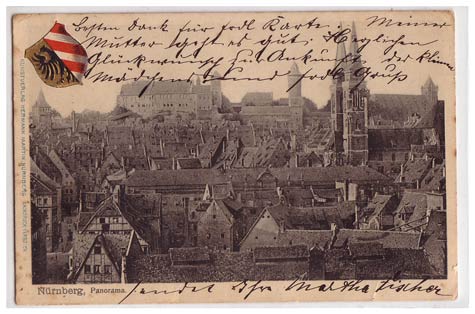 Besten Dank für frdl Karte. Meiner
Mutter geht es gut. Herzlichen
Glückwunsch zur Ankunft der kleinen
Mädchen und frdl Gruß
KUNSTVERLAG HERMANN MARTIN NÜRNBERG
Nürnberg, Panorama.
sendet Ihre Martha